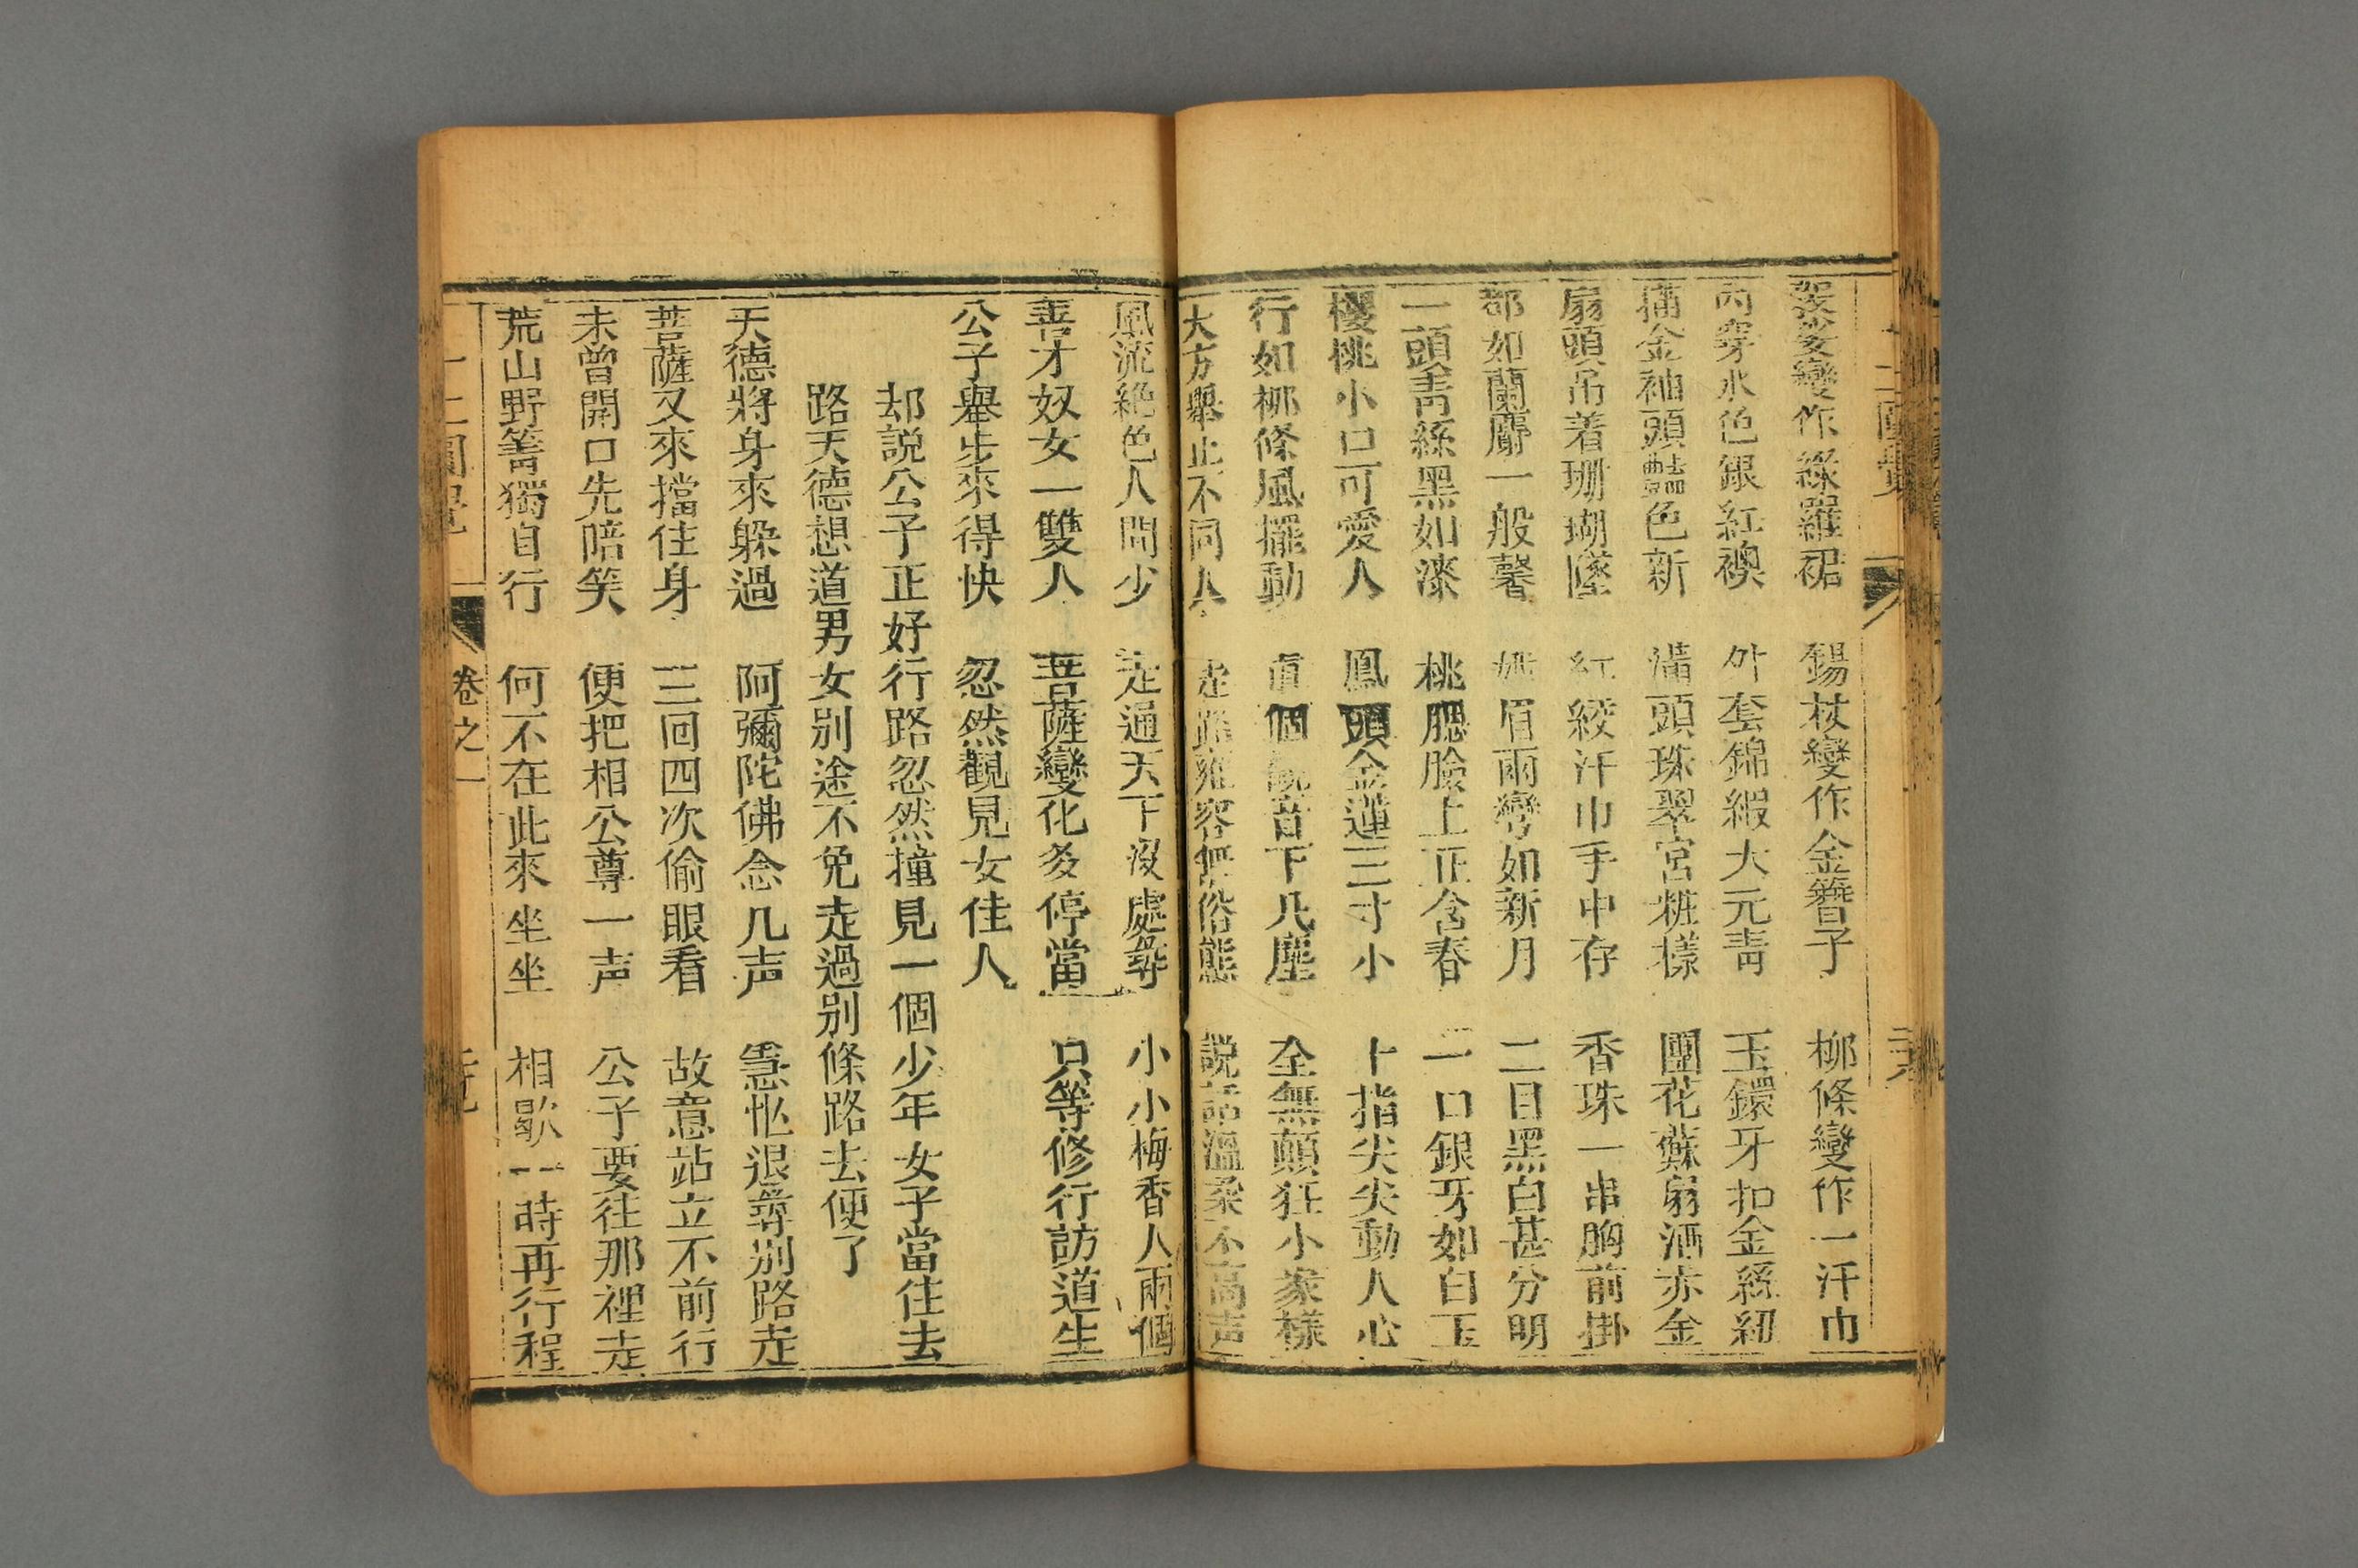 袈裟變作綠羅裙 錫杖變作金簪子 柳條變作一汗巾
內穿水色銀紅襖 外套錦緞大元青 玉鐶牙扣金絲紐
袖頭色新 滿頭珠翠宮粧樣 團花蘇扇洒赤金
扇頭吊着珊瑚墜 紅綾汗巾手中存 香珠一串胸前掛
都如蘭麝一般馨 眉兩彎如新月 二目黑白甚分明
一頭青絲黑如漆 桃腮臉上正含春 一口銀牙如白玉
櫻桃小口可愛人 鳳頭金蓮三寸小 十指尖尖動人心
行如柳條風擺動 眞個觀音下凡塵 全無顛狂小家樣
大方舉止不同人 走路雍容無俗態 說話溫柔不高声
風流絕色人間少 走通天下沒處尋 小小梅香人兩個
善才奴女一雙人 菩薩變化多停當 只等修行訪道生
公子舉步來得快 忽然觀見女佳人
却説公子正好行路忽然撞見一個少年女子當住去
路天德想道男女别途不免走過别條路去便了
天德將身來躲過 阿彌陀佛念几声 急忙退尋别路走
菩薩又來擋住身 三回四次偷眼看 故意站立不前行
未曾開口先陪笑 便把相公尊一声 公子要往那裡走
荒山野箐獨自行 何不在此來坐坐 相歇一時再行程
卷之一